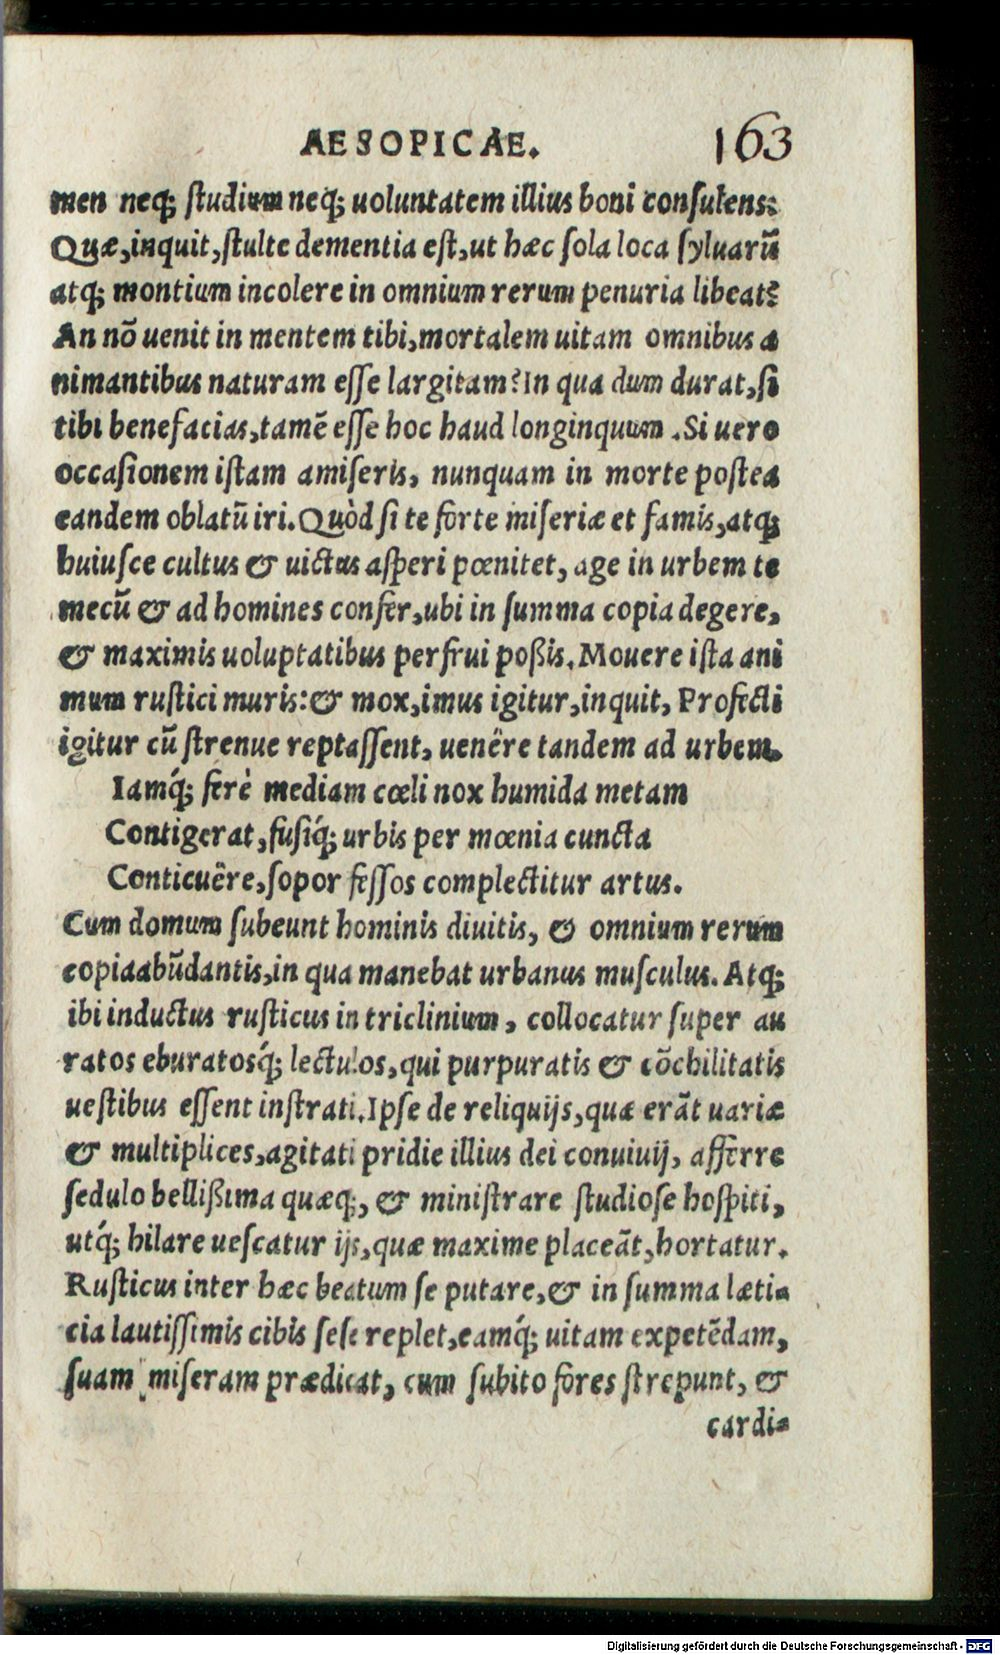 AESOPICAE. 163
men neq́; studium neq́; uoluntatem illius boni consulens:
Quæ,inquit,stulte dementia est,ut hæc sola loca syluarũ
atq́; montium incolere in omnium rerum penuria libeat?
An nõ uenit in mentem tibi,mortalem uitam omnibus a
nimantibus naturam esse largitam?In qua dum durat,si
tibi benefacias,tamẽ esse hoc haud longinquum .Si uero
occasionem istam amiseris, nunquam in morte postea
eandem oblatũ iri.Quòd si te forte miseriæ et famis,atq́;
huiusce cultus & uictus asperi pœnitet, age in urbem te
mecũ & ad homines confer,ubi in summa copia degere,
& maximis uoluptatibus perfrui poßis.Mouere ista ani
mum rustici muris:& mox,imus igitur,inquit, Profecti
igitur cũ strenue reptassent, uenêre tandem ad urbem.
Iamq́; ferè mediam cœli nox humida metam
Contigerat,fusiq́; urbis per mœnia cuncta
Conticuêre,sopor fessos complectitur artus.
Cum domum subeunt hominis diuitis, & omnium rerum
copiaabũdantis,in qua manebat urbanus musculus. Atq́;
ibi inductus rusticus in triclinium, collocatur super au
ratos eburatosq́; lectulos,qui purpuratis & cõchilitatis
uestibus essent instrati.Ipse de reliquijs,quæ erãt uariæ
& multiplices,agitati pridie illius dei conuiuij, afferre
sedulo bellißima quæq́;, & ministrare studiose hospiti,
utq́; hilare uescatur ijs,quæ maxime placeãt,hortatur.
Rusticus inter hæc beatum se putare,& in summa læti-
cia lautissimis cibis sese replet,eamq́; uitam expetẽdam,
suam miseram prædicat, cum subito fores strepunt, &
cardi-
Digitalisierung gefördert durch die Deutsche Forschungsgemeinschaft - DFG